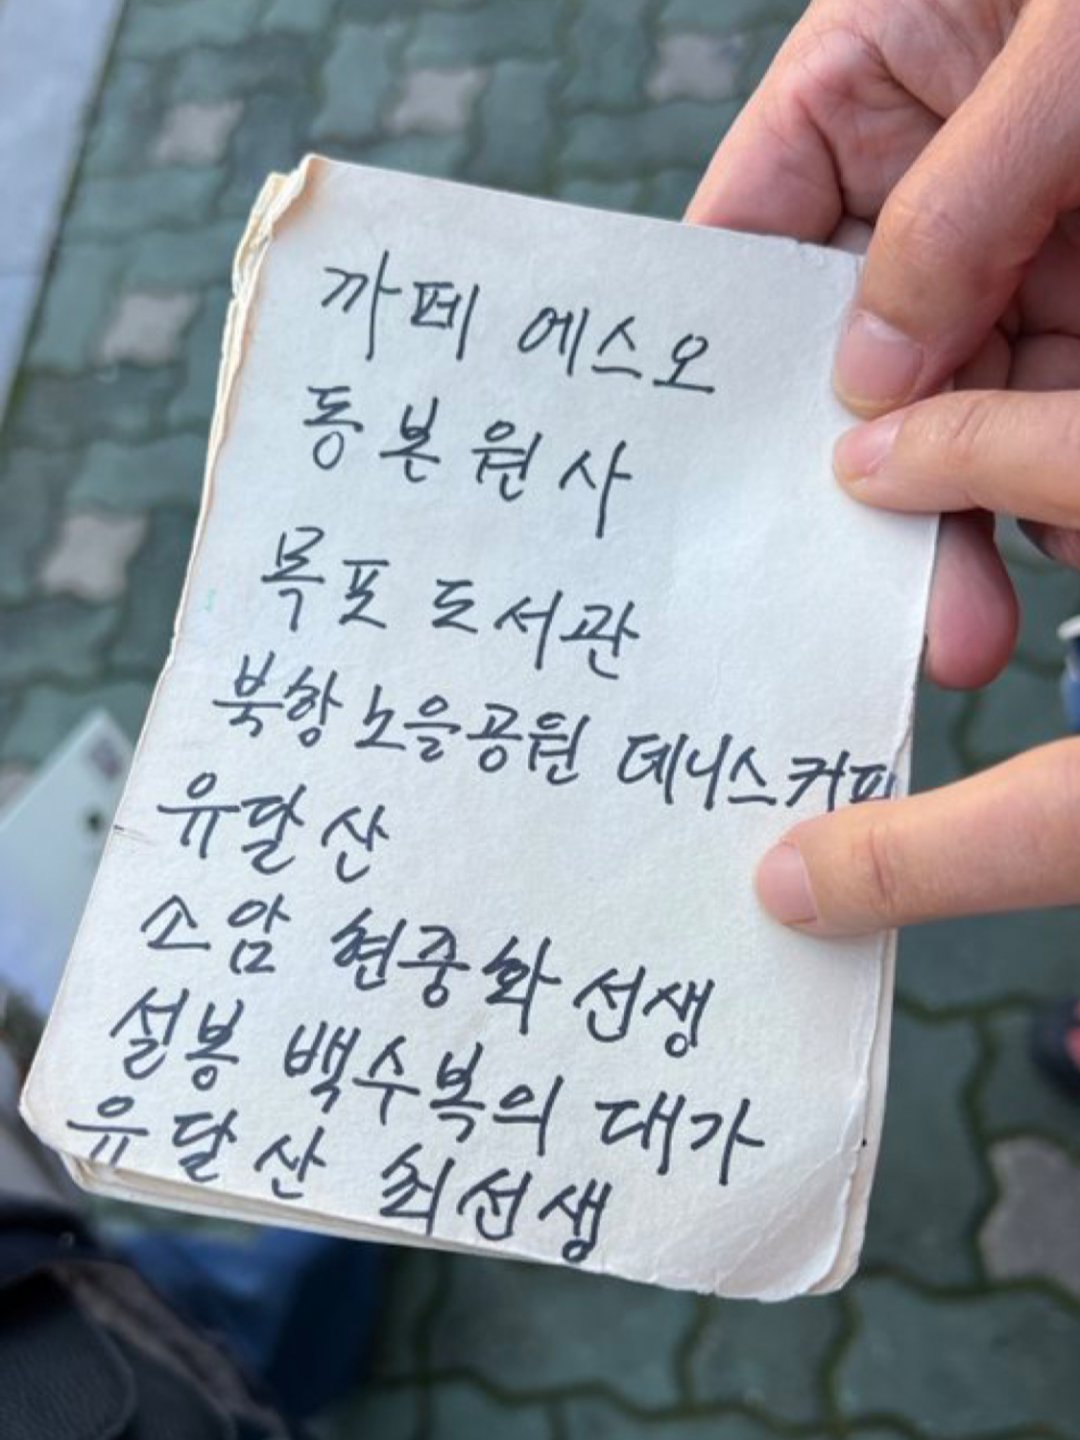 까페 에스오
동본원사
목포 도서관
북항노을공원 데니스커피
유달산
소암 현중화선생
설봉 백수복의 대가
유달산 최선생